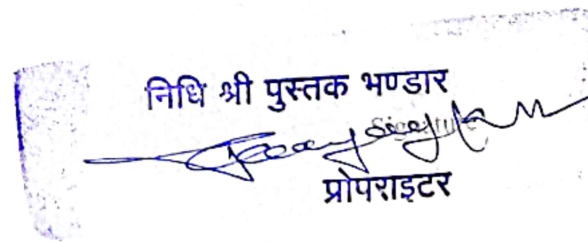 निधि श्री पुस्तक भण्डार
Signature
प्रोपराइटर